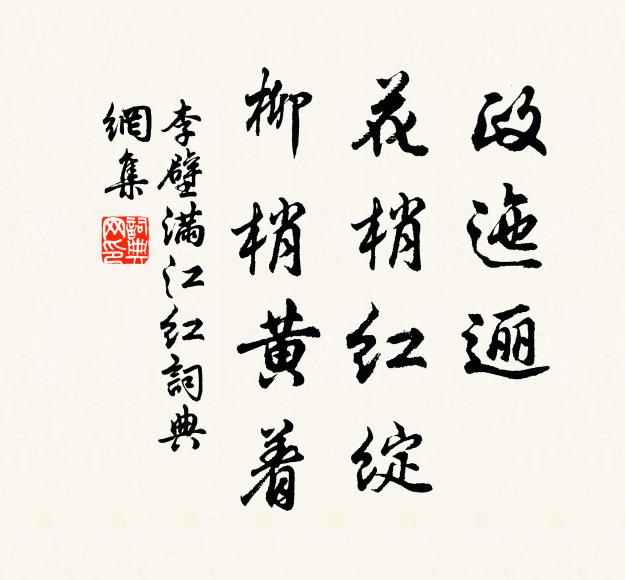 政迤逦
花梢红綻
柳梢黄着
李壁满江红詞典
網集
詞典网印